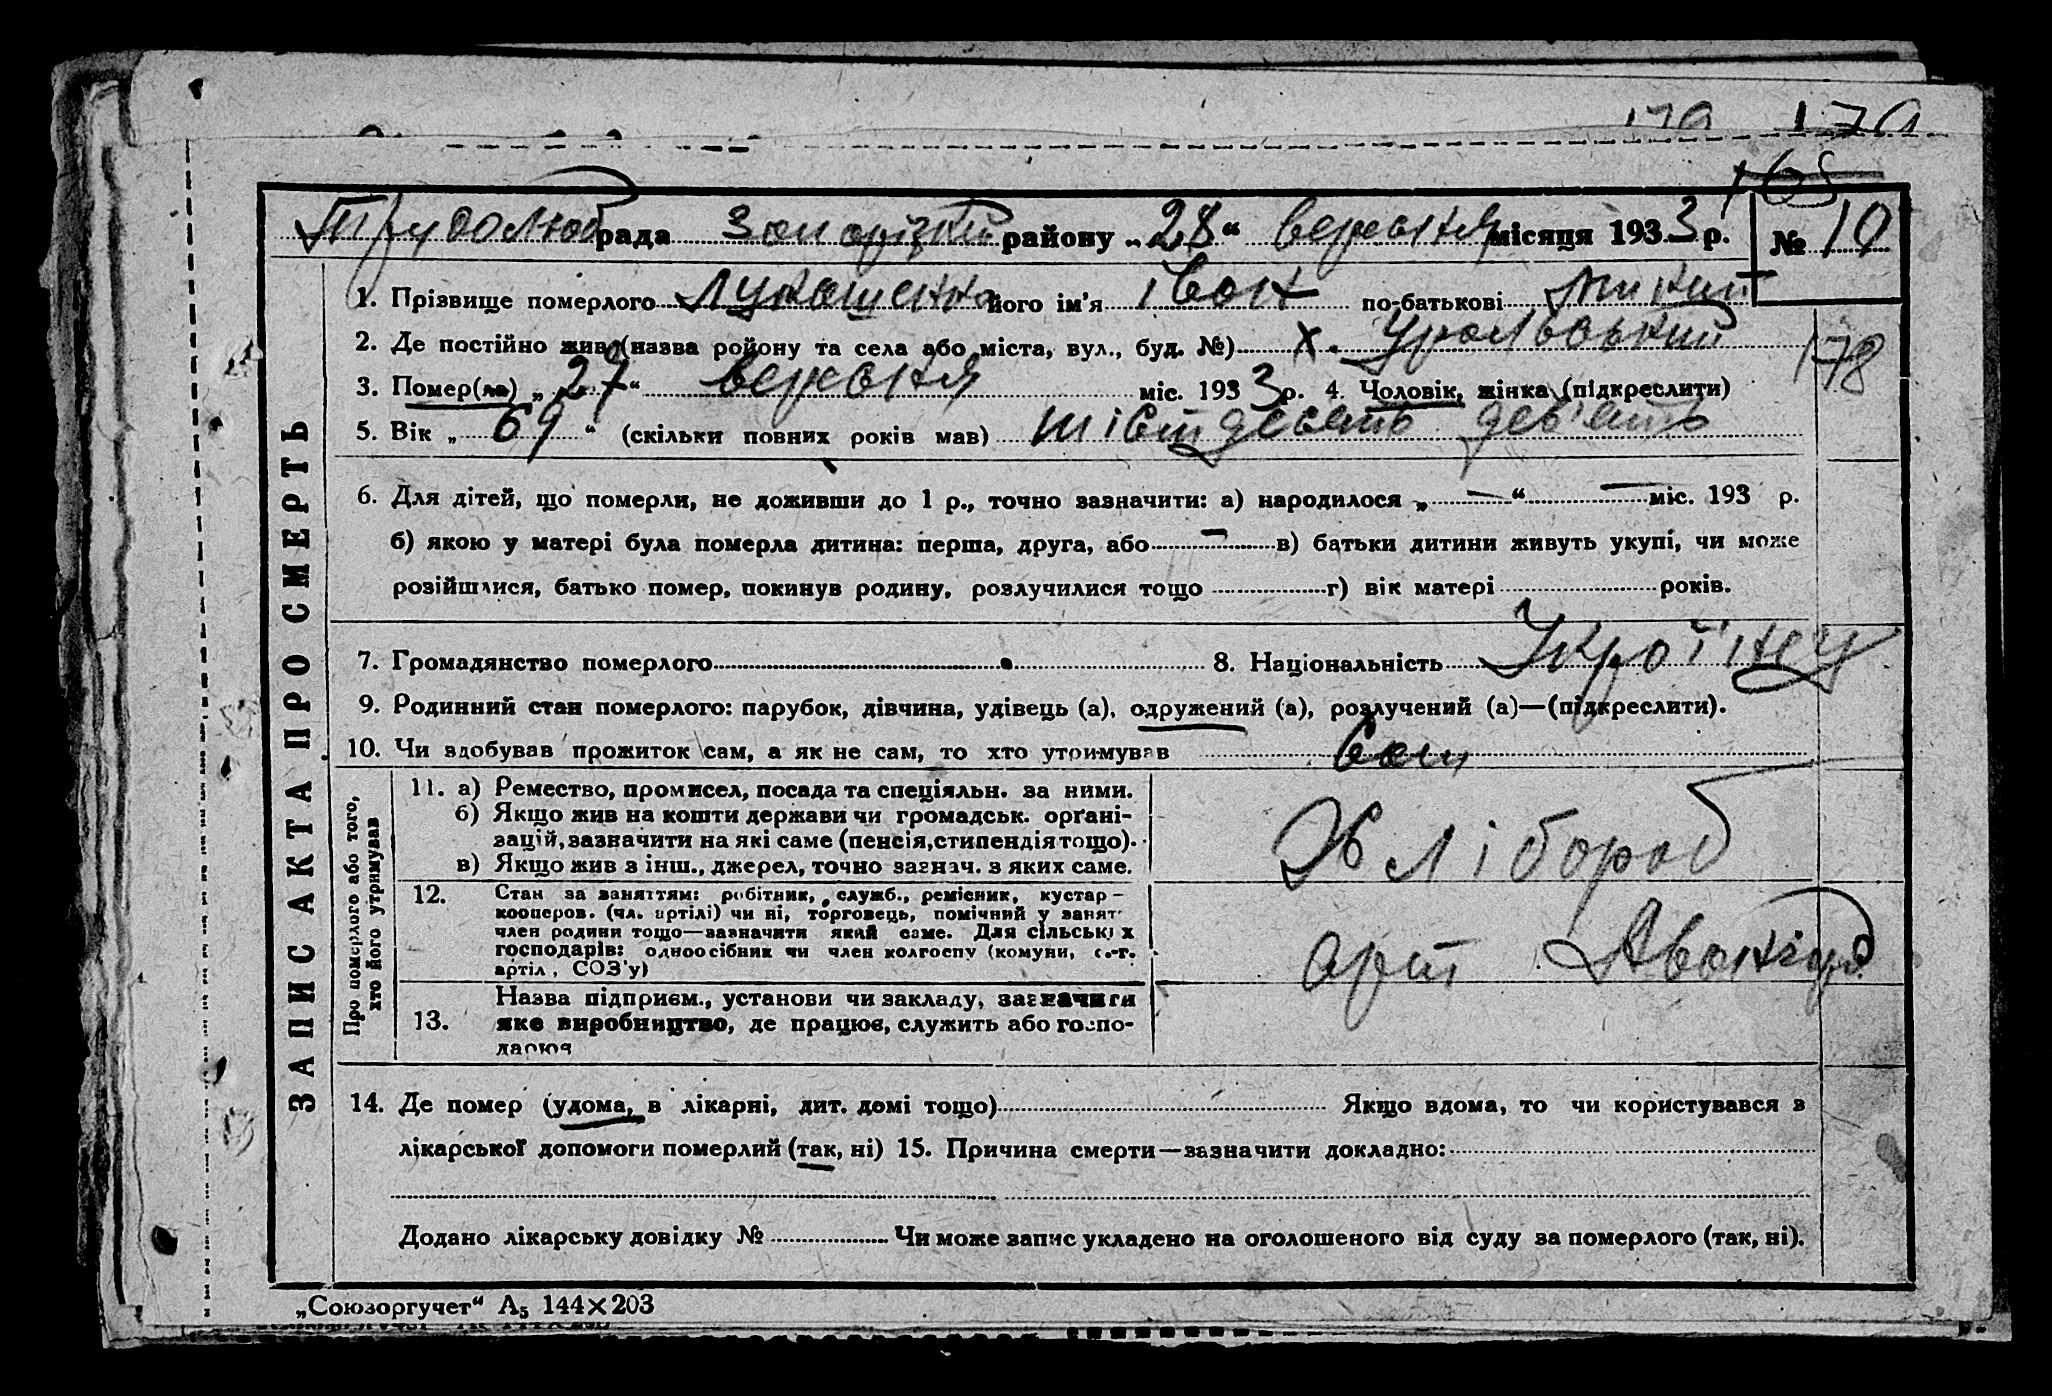 165
Трудолюб рада Запорізький району „28“ вересня місяця 1933 р. № 10
1. Прізвище померлого Лукашенка його ім'я Іван по-батькові
2. Де постійно жив (назва ройону та села або міста, вул., буд. №) х. Уральський
178
3. Помер(ла) „27“ вересня міс. 1933 р. 4. Чоловік, жінка (підкреслити)
5. Вік „69“ (скільки повних років мав) шістдесять девʼять
6. Для дітей, що померли, не доживши до 1 р., точно зазначити: а) народилося „—“ — міс. 193 р.
б) якою у матері була померла дитина: перша, друга, або — в) батьки дитини живуть укупі, чи може
розійшлися, батько помер, покинув родину, розлучилися тощо г) вік матері років.
7. Громадянство померлого 8. Національність Українец
9. Родинний стан померлого: парубок, дівчина, удівець (а), одружений (а), розлучений (а)—(підкреслити).
10. Чи здобував прожиток сам, а як не сам, то хто утримував Сам
ЗАПИС АКТА ПРО СМЕРТЬ
Про померлого або того,
хто його утримував
11. а) Ремество, промисел, посада та спеціяльн. за ними.
б) Якщо жив на кошти держави чи громадськ. орґані-
зацій, зазначити на які саме (пенсія, стипендія тощо).
в) Якщо жив з інш., джерел, точно зазнач. з яких саме.
Хлібороб
12. Стан за заняттям: робітник, служб., ремісник, кустар-
кооперов. (чл. артілі) чи ні, торговець, помічний у занят
член родини тощо—зазначити який саме. Для сільських
господарів: одноосібник чи член колгоспу (комуни, с.-г.
артіл, СОЗ'у)
арт Авангард
13. Назва підприєм., установи чи закладу, зазначити
яке виробництво, де працює, служить або госпо-
дарює
14. Де помер (удома, в лікарні, дит. домі тощо) Якщо вдома, то чи користувався з
лікарської допомоги померлий (так, ні) 15. Причина смерти—зазначити докладно:
Додано лікарську довідку № Чи може запис укладено на оголошеного від суду за померлого (так, ні).
„Союзоргучет“ А5 144×203